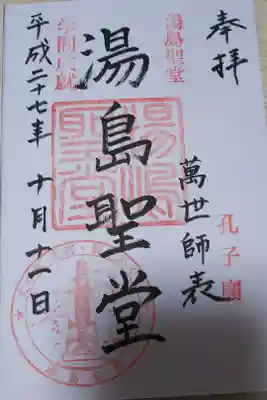 奉拝
湯島聖堂
萬世師表
孔子廟
湯島聖堂
湯島聖堂
平成二十七年 十月十一日